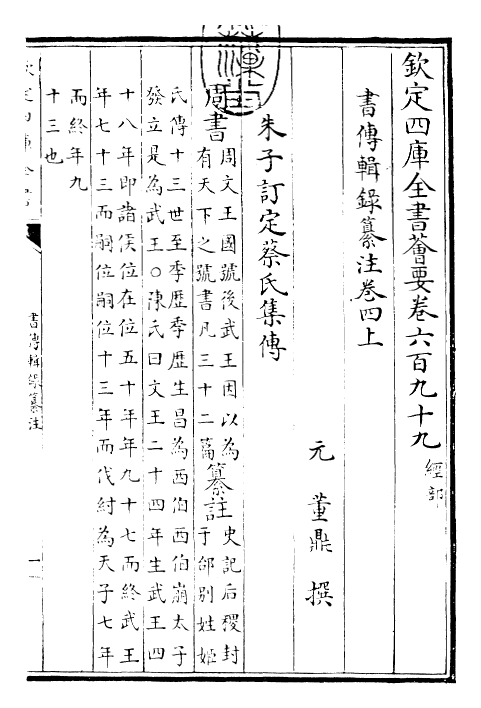 欽定四庫全書薈要卷六百九十九 經部
書傳輯錄纂注卷四上
元 董鼎 撰
朱子訂定蔡氏集傳
周書 周文王國號後武王因以為
有天下之號書凡三十二篇 纂註 史記后稷封
于邰別姓姬
氏傳十三世至季歴季歴生昌為西伯西伯崩太子
發立是為武王○陳氏曰文王二十四年生武王四
十八年即諸侯位在位五十年年九十七而終武王
年七十三而嗣位嗣位十三年而代紂為天子七年
而終年九
十三也
欽定四庫全書
書傳輯錄纂注
一